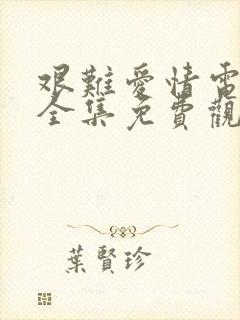 艱難愛情電
全集免費觀
葉賢珍